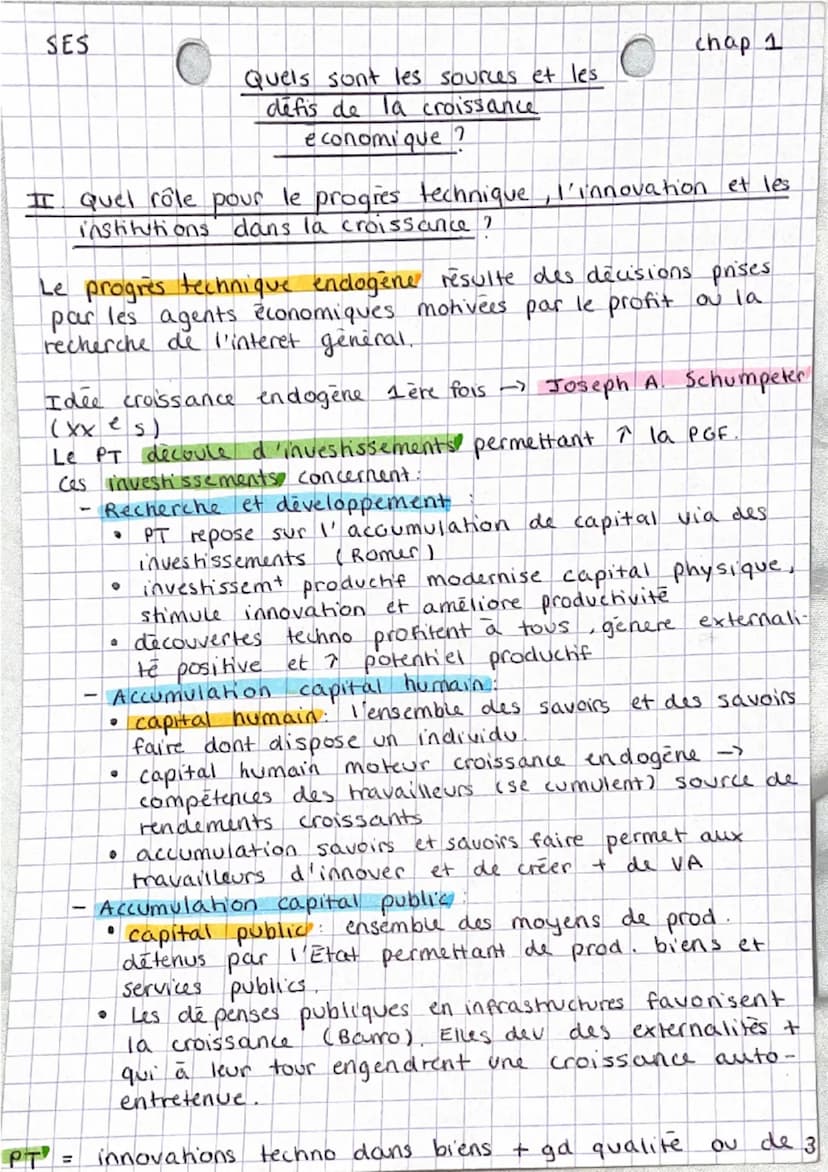 SES
chap 1
Quels sont les sources et les
défis de la croissance
économique ?
II. Quel rôle pour le progrès technique, l'innovation et les
institutions dans la croissance ?
Le progrès technique endogène résulte des décisions prises
par les agents économiques motivées par le profit ou la
recherche de l'interet général.
Idée croissance endogène 1ère fois → Joseph A. Schumpeter
(XX e s)
Le PT découle d'investissements permettant ↑ la PGF.
Ces investissements concernent :
- Recherche et développement :
• PT repose sur l'accumulation de capital via des
investissements (Romer)
• investissemt productif modernise capital physique,
stimule innovation et améliore productivité
• découvertes techno profitent à tous, génère externali-
té positive et ↗ potentiel productif
- Accumulation capital humain :
• capital humain : l'ensemble des savoirs et des savoirs
faire dont dispose un individu.
• capital humain moteur croissance endogène →
compétences des travailleurs (se cumulent) source de
rendements croissants
• accumulation savoirs et savoirs faire permet aux
travailleurs d'innover et de créer + de VA
- Accumulation capital public :
• capital public : ensemble des moyens de prod.
détenus par l'Etat permettant de prod. biens et
services publics.
• Les dépenses publiques en infrastructures favorisent
la croissance (Barro). Elles dev des externalités +
qui à leur tour engendrent une croissance auto-
entretenue.
PT = innovations techno dans biens + gd qualité ou de 3